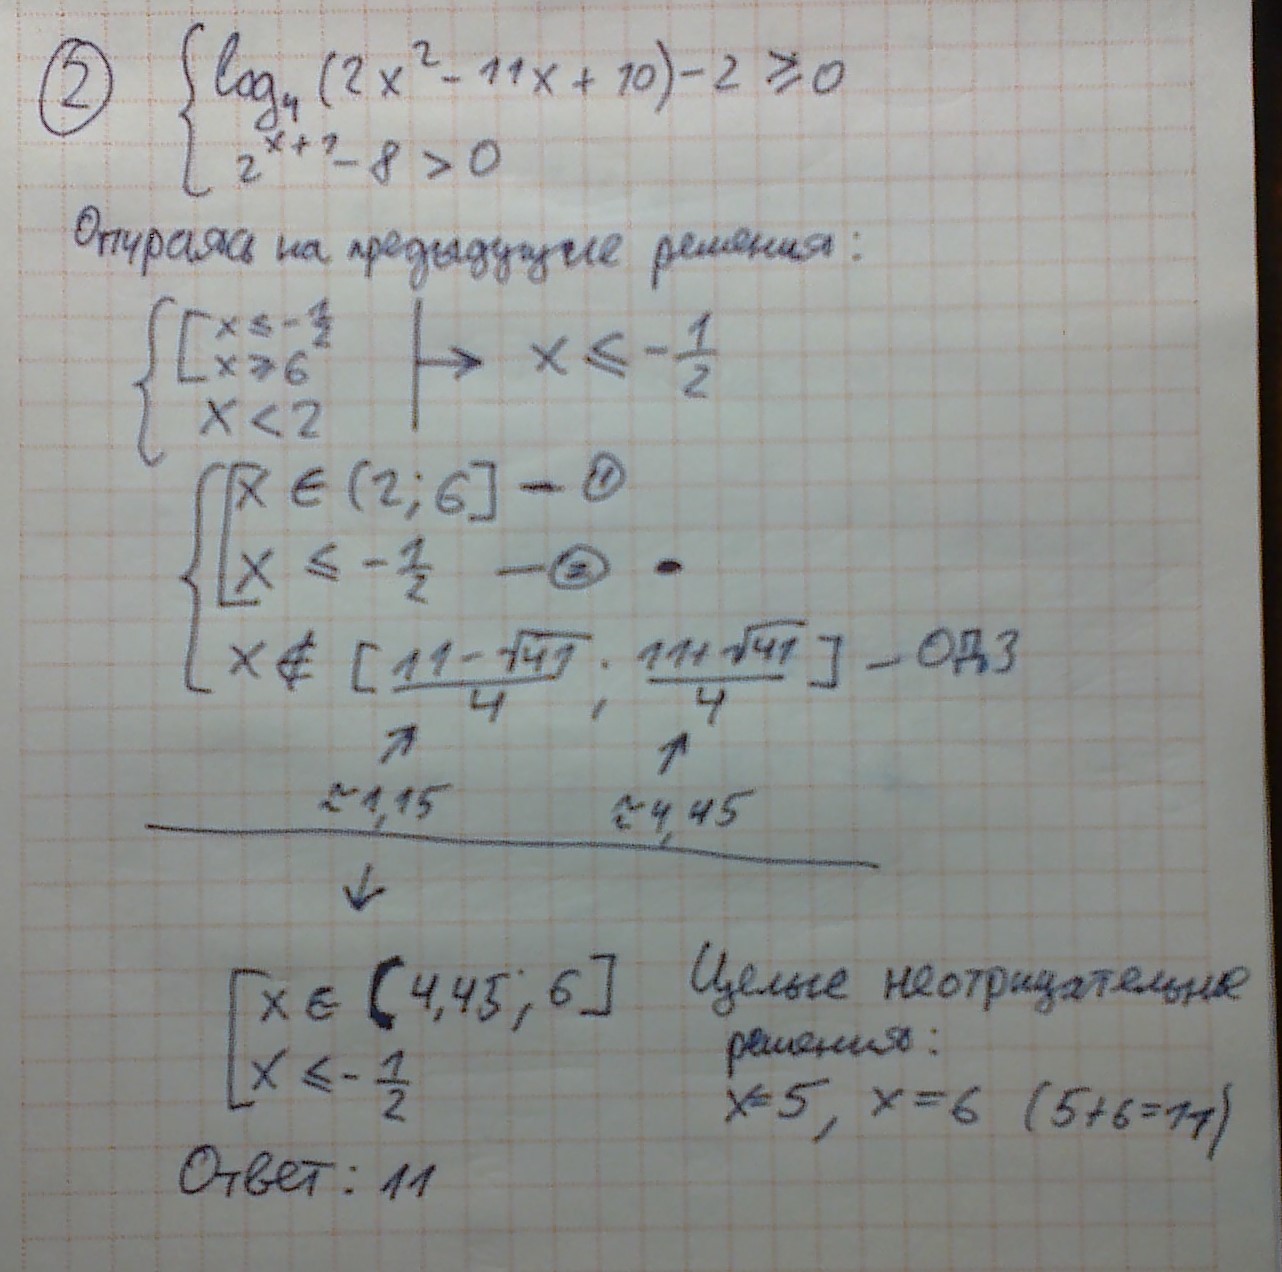 ② { log₄ (2x² - 11x + 10) - 2 ≥ 0
2^(x+1) - 8 > 0
Опираясь на предыдущие решения:
{ [ x ≤ -1/2
x ≥ 6
x < 2
→ x ≤ -1/2
{ [ x ∈ (2; 6] - ①
x ≤ -1/2 - ②
x ∉ [ (11-√41)/4 ; (11+√41)/4 ] - ОДЗ
↑ ↑
≈1,15 ≈4,45
↓
[ x ∈ (4,45; 6]
x ≤ -1/2
Целые неотрицательные
решения:
x=5, x=6 (5+6=11)
Ответ: 11